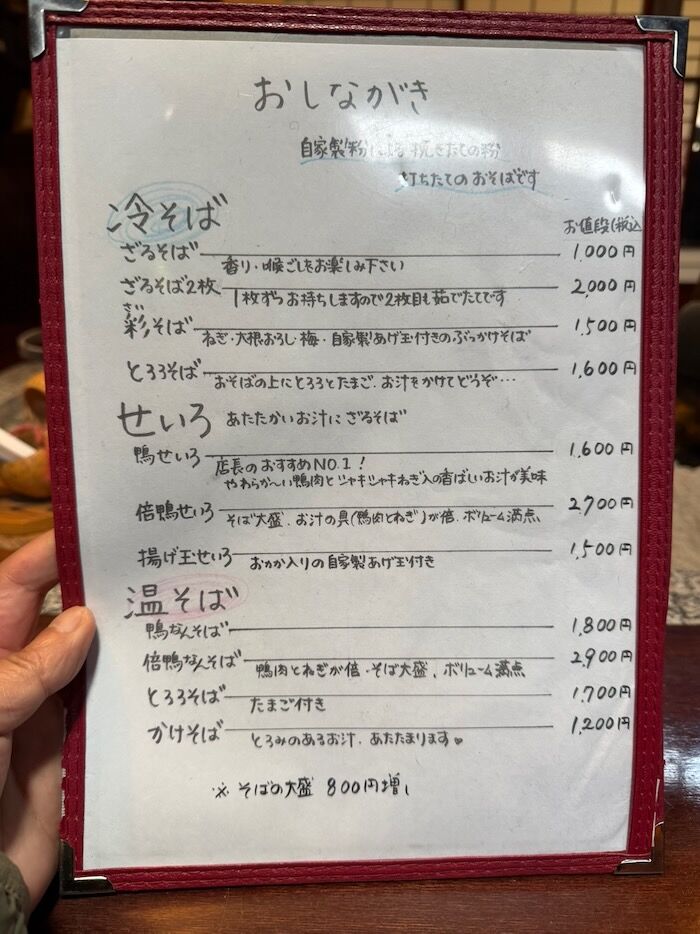 おしながき
自家製粉による挽きたての粉
打ちたてのおそばです
冷そば
お値段(税込
ざるそば 1,000円
香り・喉ごしをお楽しみ下さい
ざるそば2枚 2,000円
1枚ずつお持ちしますので2枚目も茹でたてです
彩そば 1,500円
ねぎ・大根おろし・梅・自家製あげ玉付きのぶっかけそば
とろろそば 1,600円
おそばの上にとろろとたまご、お汁をかけてどうぞ…
せいろ あたたかいお汁にざるそば
鴨せいろ 1,600円
店長のおすすめNO.1!
やわらか〜い鴨肉とジャキジャキねぎ入の香ばしいお汁が美味
倍鴨せいろ 2,700円
そば大盛、お汁の具(鴨肉とねぎ)が倍、ボリューム満点
揚げ玉せいろ 1,500円
おかか入りの自家製あげ玉付き
温そば
鴨なんそば 1,800円
倍鴨なんそば 2,900円
鴨肉とねぎが倍・そば大盛、ボリューム満点
とろろそば 1,700円
たまご付き
かけそば 1,200円
とろみのあるお汁、あたたまります♥
※そばの大盛 800円増し